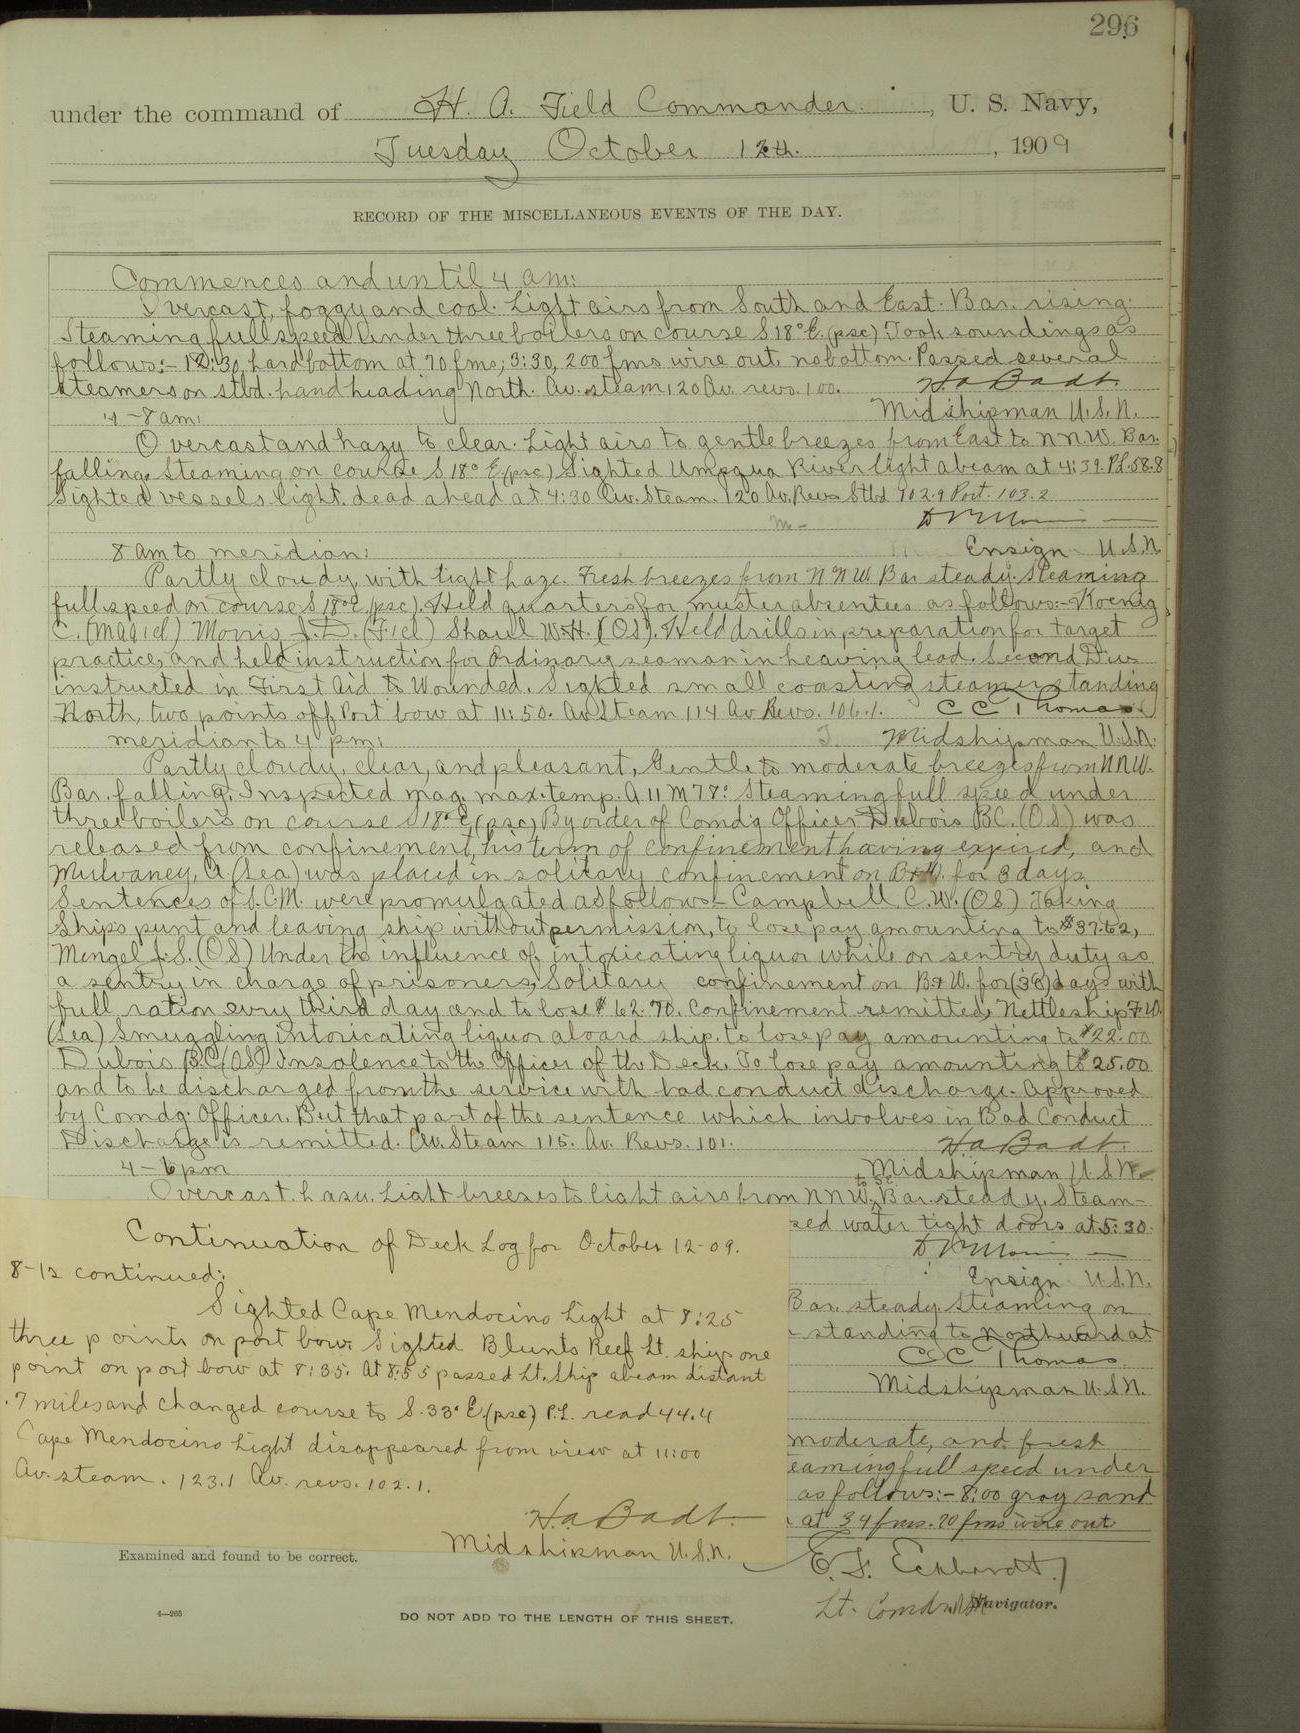 296
under the command of H. A. Field Commander. , U. S. Navy,
Tuesday October 12th. , 1909
RECORD OF THE MISCELLANEOUS EVENTS OF THE DAY.
Commences and until 4 am:
Overcast, foggy and cool. Light airs from South and East. Bar. rising.
Steaming full speed under three boilers on course S 18° E. (psc) Took soundings as
follows:- 12:30, hard bottom at 70 fms; 3:30, 200 fms wire out, no bottom. Passed several
steamers on stbd. hand heading North. Av. steam 120 Av. revs. 100. H a Badt
4-8 am: Midshipman U.S.N.
Overcast and hazy to clear. Light airs to gentle breezes from East to NNW. Bar.
falling. Steaming on course S 18° E (psc) Sighted Umpqua River light abeam at 4:39. P.L. 58.8
Sighted vessels light. dead ahead at 4:30 Av. Steam. 120 Av. Revs Stbd 102.9 Port. 103.2
8 am to meridian: Ensign U.S.N.
Partly cloudy with light haze. Fresh breezes from NNW Bar steady. Steaming
full speed on course S 18° E (psc). Held quarters for muster absentees as follows:- Koenig
C. (Mag 1 cl) Morris J. D. (F 1 cl) Shaul W. H. (OS). Held drills in preparation for target
practice, and held instruction for Ordinary seaman in heaving lead. Second Div.
instructed in First Aid to Wounded. Sighted small coasting steamer standing
North, two points off Port bow at 11:50. Av Steam 114 Av Revs. 106.1. C C Thomas
meridian to 4 pm: Midshipman U.S.N.
Partly cloudy, clear, and pleasant, Gentle to moderate breezes from NNW.
Bar. falling. Inspected mag. max. temp. A 11 M 77° Steaming full speed under
three boilers on course S 18° E (psc) By order of Comdg Officer Dubois B.C. (OS) was
released from confinement, his term of confinement having expired, and
Mulvaney, A (Sea) was placed in solitary confinement on B+W. for 3 days.
Sentences of S.C.M. were promulgated as follows:- Campbell C.W. (OS) Taking
Ships punt and leaving ship without permission, to lose pay amounting to $37.62,
Mengel J.S. (OS) Under the influence of intoxicating liquor while on sentry duty as
a sentry in charge of prisoners, Solitary confinement on B+W. for (30) days with
full ration evry third day and to lose $62.70. Confinement remitted, Nettleship F.W.
(Sea) Smuggling intoxicating liquor aboard ship. to lose pay amounting to $22.00
Dubois B.C. (OS) Insolence to the Officer of the Deck. To lose pay amounting to $25.00
and to be discharged from the service with bad conduct discharge. Approved
by Comdg. Officer. But that part of the sentence which involves in Bad Conduct
Discharge is remitted. Av. Steam 115. Av. Revs. 101. H a Badt.
4-6 pm Midshipman U.S.N.
Overcast hazy. Light breezes to light airs from NNW to SE. Bar. steady. Steam-
sed water tight doors at 5:30.
Ensign U.S.N.
Bar. steady. Steaming on
standing to Northward at
C C Thomas.
Midshipman U.S.N.
moderate, and fresh
eaming full speed under
as follows:- 8:00 gray sand
at 34 fms. 70 fms wire out
Continuation of Deck Log for October 12-09.
8-12 continued:
Sighted Cape Mendocino Light at 8:25
three points on port bow. Sighted Blunts Reef Lt. ship one
point on port bow at 8:35. At 8:55 passed Lt. Ship abeam distant
.7 miles and changed course to S. 33° E. (psc) P.L. read 44.4
Cape Mendocino Light disappeared from view at 11:00
Av. steam. 123.1 Av. revs. 102.1.
H. a Badt
Midshipman U.S.N.
Examined and found to be correct.
E. F. Eckhardt
Lt. Comdr. USN Navigator.
4—265
DO NOT ADD TO THE LENGTH OF THIS SHEET.